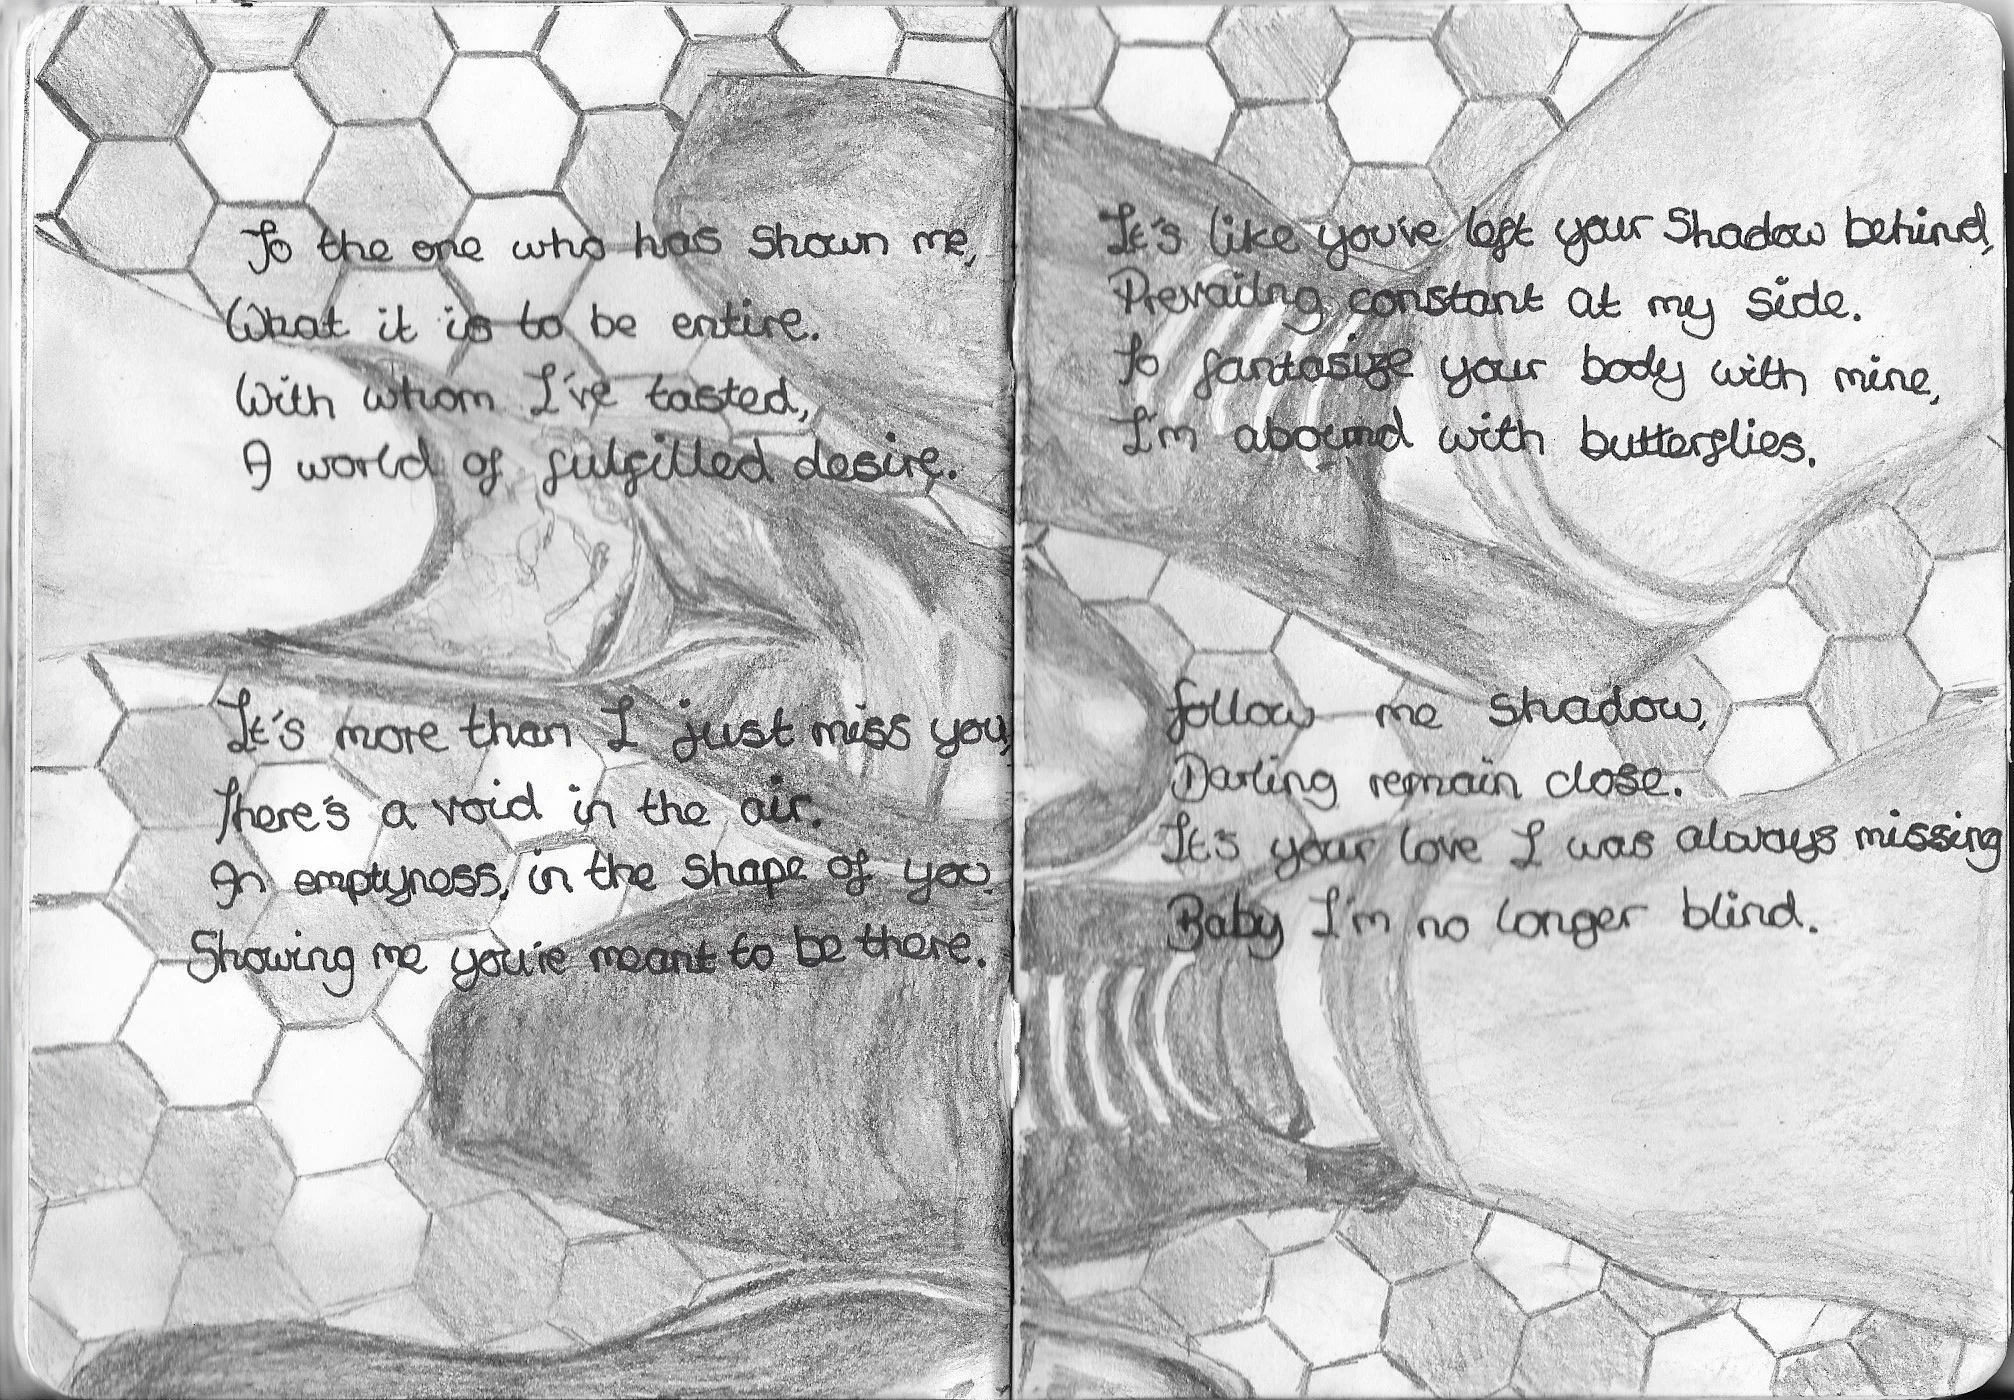 To the one who has shown me,
What it is to be entire.
With whom I've tasted,
A world of fulfilled desire.
It's more than I just miss you,
There's a void in the air.
An emptyness, in the shape of you.
Showing me you're meant to be there.
It's like you've left your shadow behind,
Prevailing constant at my side.
To fantasize your body with mine,
I'm abound with butterflies.
follow me shadow,
Darling remain close.
It's your love I was always missing
Baby I'm no longer blind.